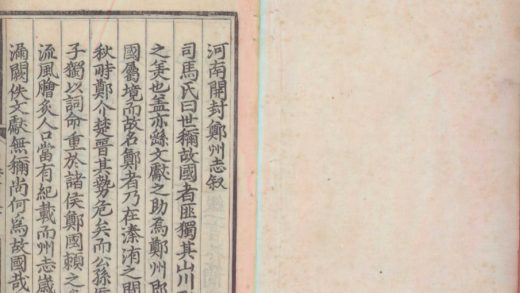 河南開封鄭州志叙
司馬氏曰世稱故國者匪獨其山川
之羙也盖亦繇文獻之助焉鄭州郎
國屬境而故名鄭者乃在溱洧之間
秋時鄭介楚晋其勢危矣而公孫
子獨以詞命重於諸侯鄭國頼之
流風膾炙人口當有紀載而州志歳
漏闕佚文獻無稱尚何為故國哉